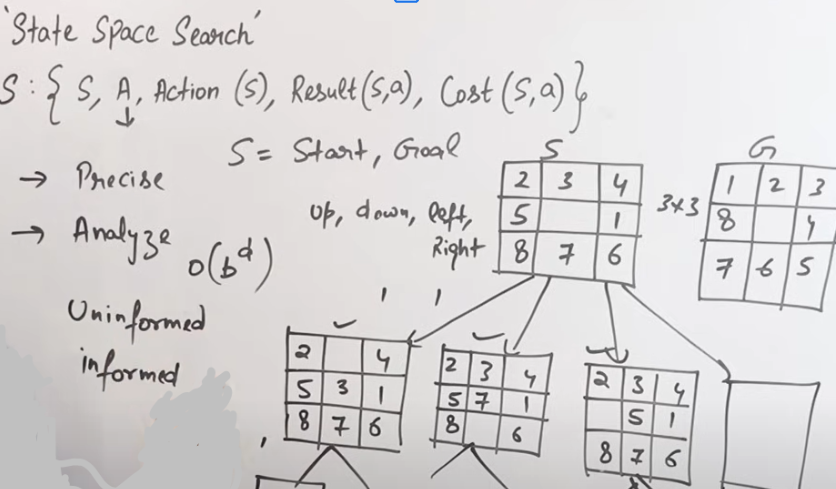 'State Space Search'
S : { S, A, Action (s), Result (S,a), Cost (S,a) }
S = Start, Goal
→ Precise
→ Analyze
O(b^d)
Uninformed
informed
Up, down, left,
Right
S
2 3 4
5 1
8 7 6
3x3
G
1 2 3
8 4
7 6 5
2 4
5 3 1
8 7 6
2 3 4
5 7 1
8 6
2 3 4
5 1
8 7 6